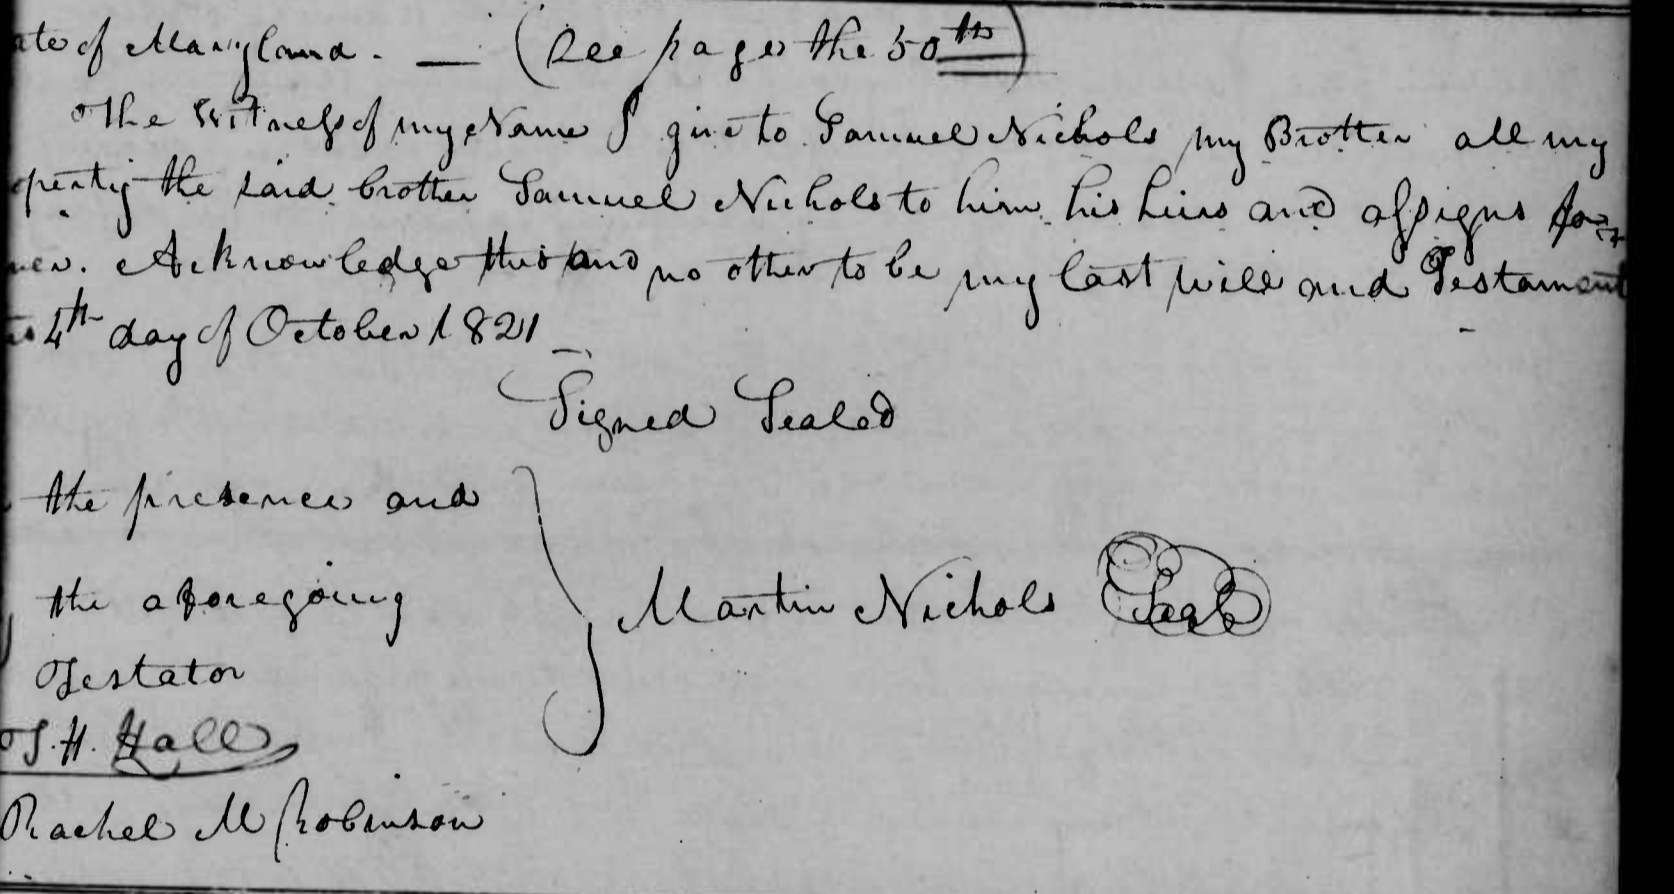 ate of Maryland. — (See page the 50th)
The Witness of my Name I give to Samuel Nichols my Brother all my
operty the said brother Samuel Nichols to him his heirs and assigns for=
ver. Acknowledge this and no other to be my last will and Testament
is 4th day of October 1821
Signed Sealed
the presence and
the aforegoing
Testator
Martin Nichols Seal
T. H. Hall
Rachel M Robinson